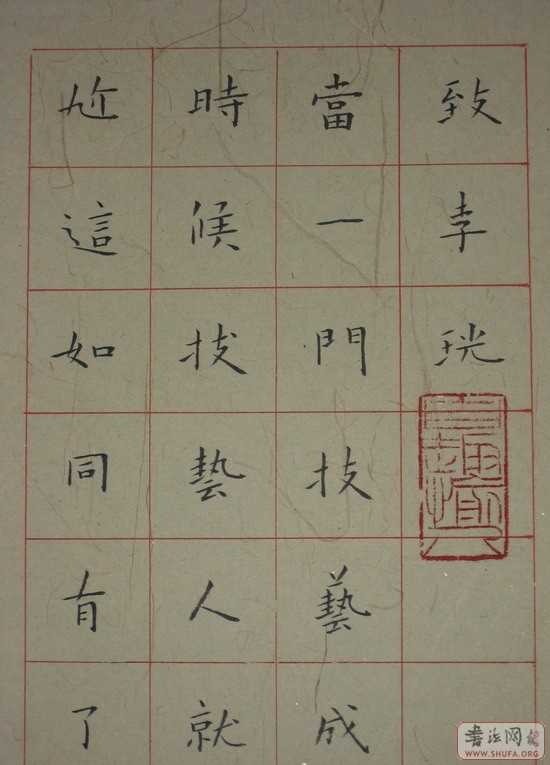 致李珖
當一門技藝成
時候技藝人就
尬這如同有了
书法网
WWW.SHUFA.ORG